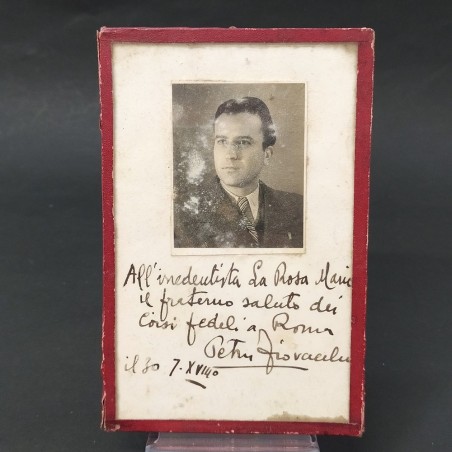 All'irredentista La Rosa Mario
il fraterno saluto dei
Corsi fedeli a Roma
Petru Giovacchi
il 30 7. XVIIIº